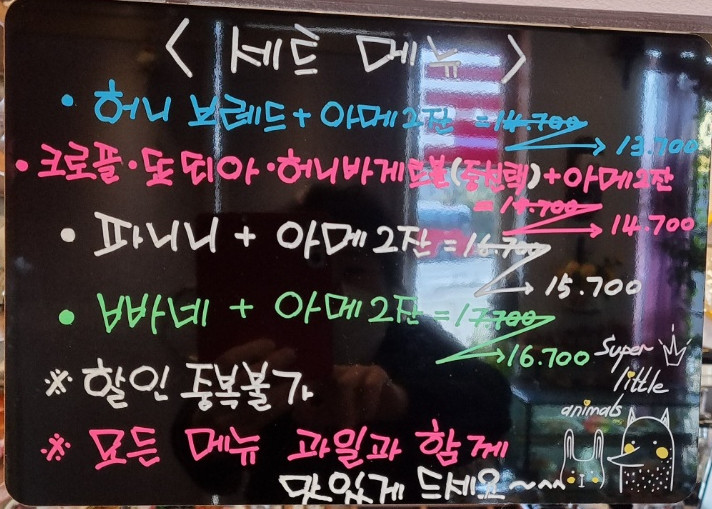 < 세트 메뉴 >
• 허니 브레드 + 아메 2잔 = 14.700 → 13.700
• 크로플 · 또띠아 · 허니바게트볼 (중선택) + 아메 2잔
= 15.700 → 14.700
• 파니니 + 아메 2잔 = 16.700
→ 15.700
• 빠네 + 아메 2잔 = 17.700
→ 16.700
※ 할인 중복불가
※ 모든 메뉴 과일과 함께
맛있게 드세요~~~
Super
little
animals